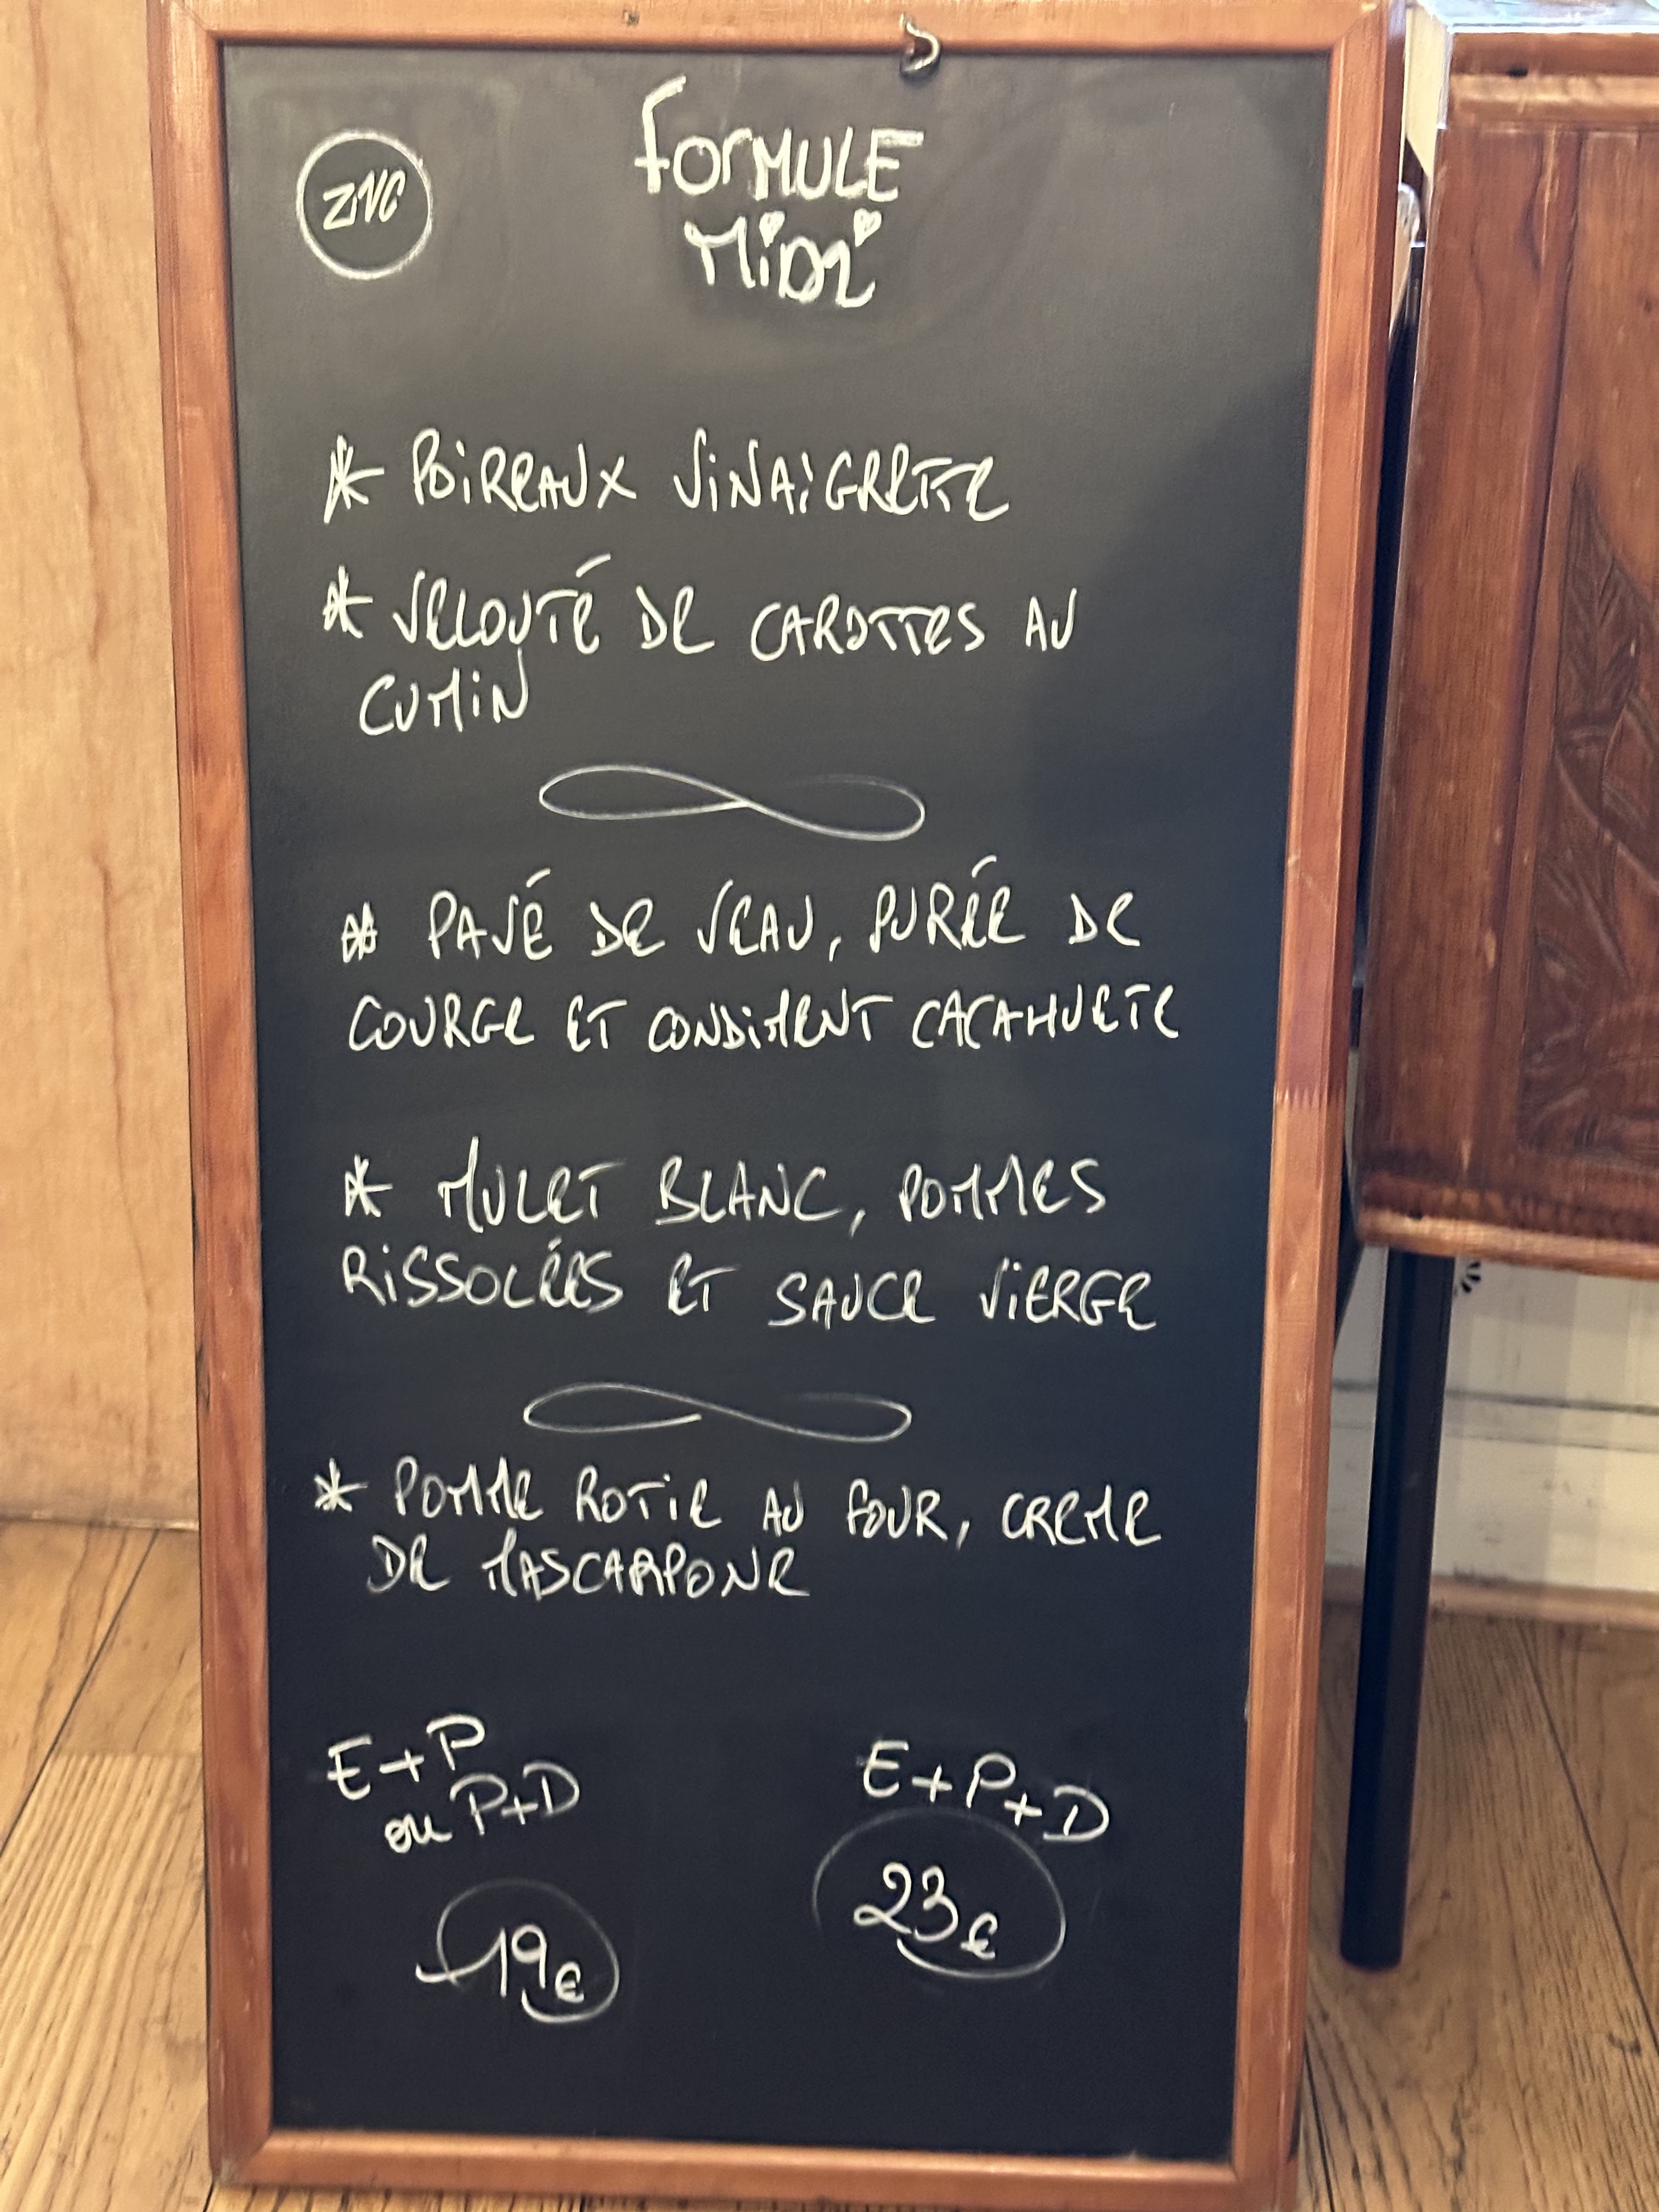 ZINC
FORMULE
MIDI
* POIREAUX VINAIGRETTE
* VELOUTÉ DE CAROTTES AU
CUMIN
* PAVÉ DE VEAU, PURÉE DE
COURGE ET CONDIMENT CACAHUETE
* MULET BLANC, POMMES
RISSOLÉES ET SAUCE VIERGE
* POMME ROTIE AU FOUR, CREME
DE MASCARPONE
E+P
ou P+D
19€
E+P+D
23€